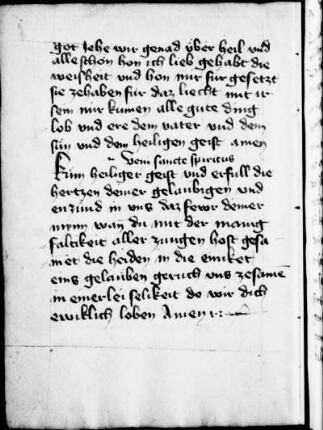 got sehe wir genad vber heil vnd
alle schon hon ich lieb gehabt die
weisheit vnd hon mir fur gesetzt
sie zehaben fur daz liecht mit ir
sein mir kumen alle gute ding
lob vnd ere dem vater vnd dem
sun vnd dem heiligen geist amen
Veni sancte spiritus
Kum heiliger geist vnd erfull die
hertzen deiner gelaubigen vnd
enzund in vns daz fewr deiner
mynn wan du mit der manig
faltikeit aller zungen host gesa
met die heiden in die einikeit
eins gelauben geruch vns zesame
in einerlei selikeit do wir dich
ewiklich loben Amen